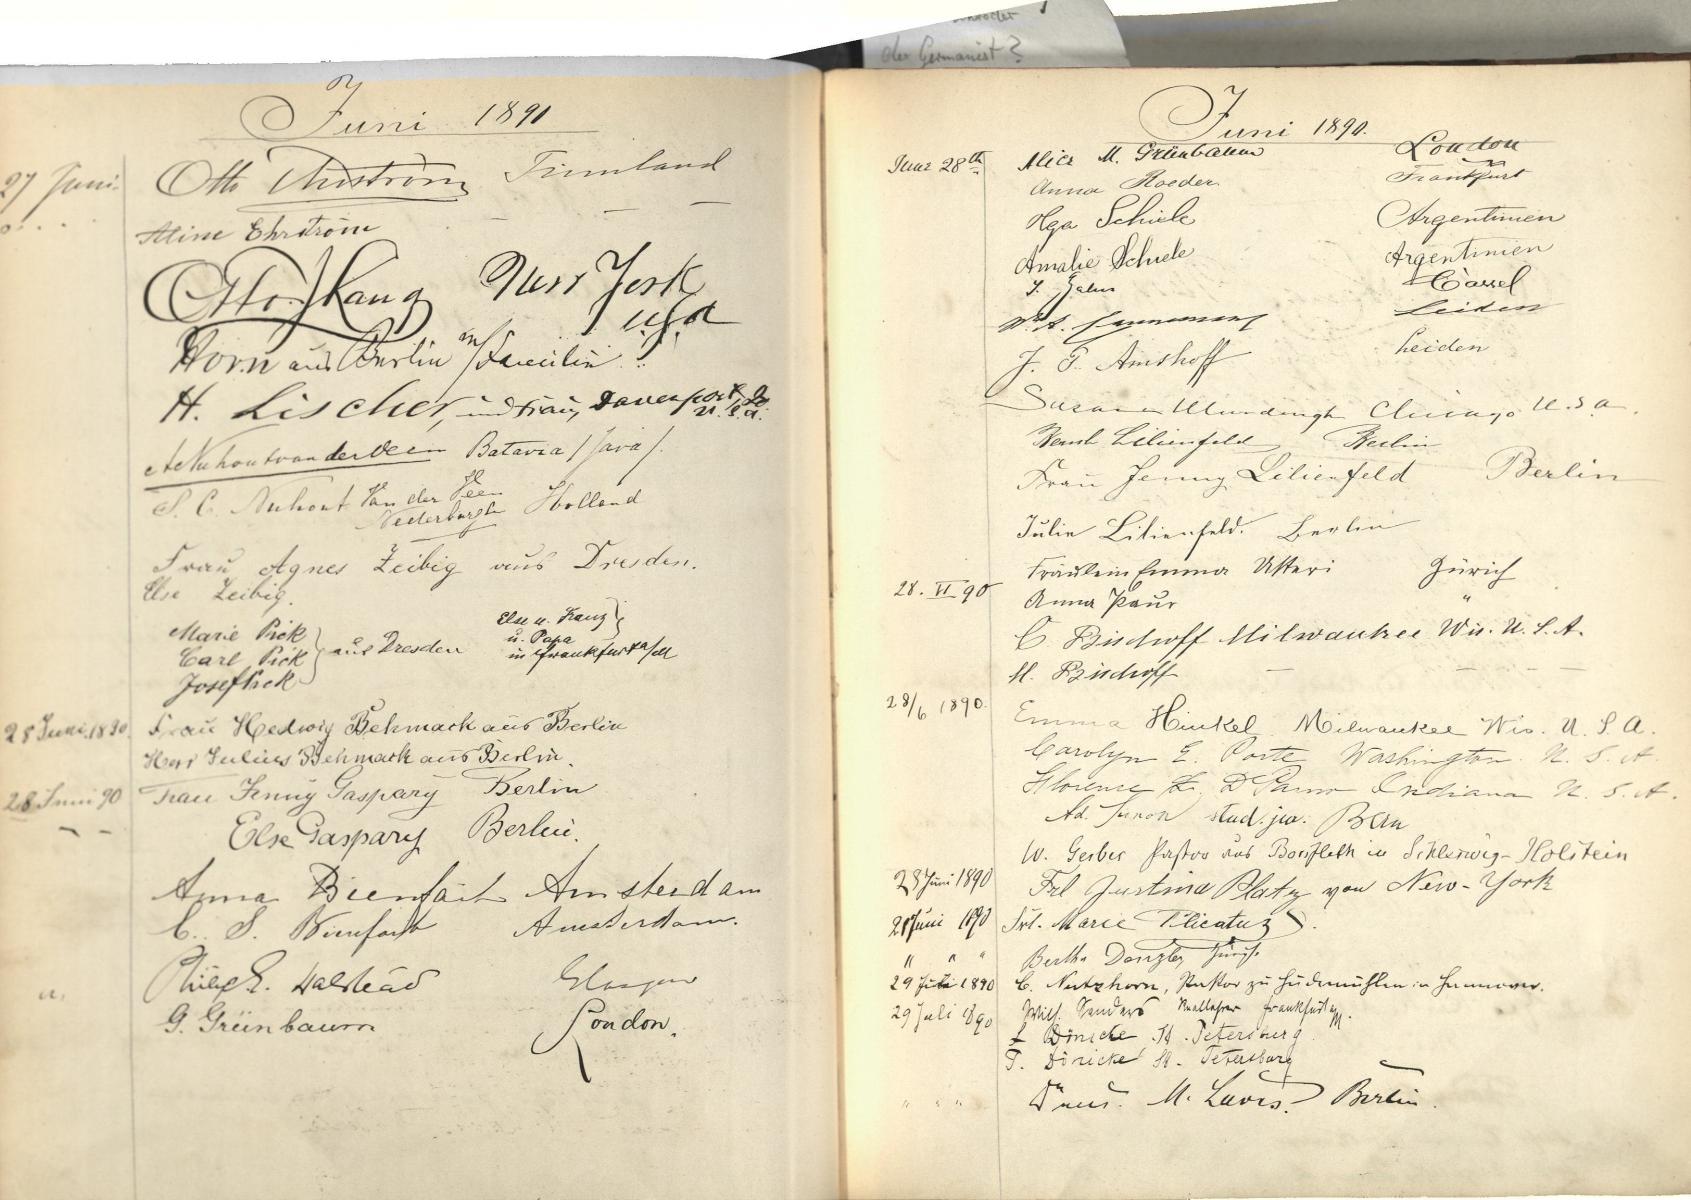 Juni 1890
27 Juni Otto Ehrström Finnland
Aline Ehrström — — —
Otto Kanz New York
U.S.A
Horn aus Berlin m/ Familie
H. Lischer, und Frau, Davenport, Io. U.S.A.
A Nuhout van der Veen Batavia / Java /.
S. C. Nuhout Van der Veen Holland
Nederburgh
Frau Agnes Zeibig aus Dresden.
Else Zeibig.
Marie Pick
Carl Pick aus Dresden
Josef Pick
Else u. Franz
u. Papa
in Frankfurt a/M
28 Juni. 1890. Frau Hedwig Behmack aus Berlin
Herr Julius Behmack aus Berlin.
28 Juni 90 Frau Jenny Gaspary Berlin
Else Gaspary Berlin.
Anna Bienfait Amsterdam
C. S. Bienfait Amsterdam.
Philip E. Halstead Glasgow
G. Grünbaum London.
der Germanist?
Juni 1890.
June 28th Alice M. Grünbaum London
Anna Roeder Frankfurt
Olga Schiele Argentinien
Amalie Schiele Argentinien
Cassel
Leiden
J. F. Amshoff Leiden
Chicago U.S.A.
Lilienfeld Berlin
Frau Jenny Lilienfeld Berlin
Julie Lilienfeld. Berlin
Fräulein Emma Usteri Zürich
28. VI 90 Anna Paur "
C Bischoff Milwaukee Wis. U.S.A.
M. Bischoff — — — —
28/6 1890. Emma Hinkel Milwaukee Wis. U.S.A.
Carolyn E. Porte Washington U.S.A.
Florence Indiana U.S.A.
Ad. Simon stud. jur. Bern
W. Gerber Pastor aus Borsfleth in Schleswig-Holstein
28 Juni 1890 Frl Justina Platz von New-York
28 Juni 1890 Frl. Marie
" " " Bertha Danzler Zürich.
29 Juli 1890 C. Nutzhorn, Pastor zu Hudemühlen in Hannover.
29 Juli 1890 Wilh. Sanders Reallehrer Frankfurt a/M.
F Dönicke St. Petersburg
F. Dönicke St. Petersburg
" " " M. Berlin.